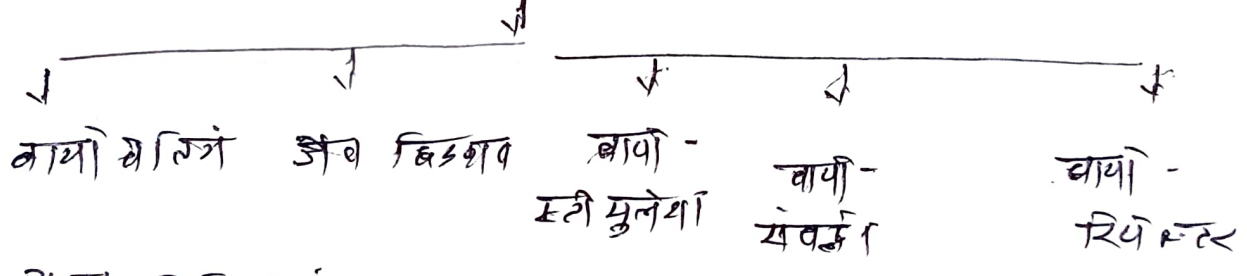 बायोवेंटिंग जैव छिड़काव बायो-
स्टीमुलेशन बायो- बायो-
संवर्द्धन रिएक्टर